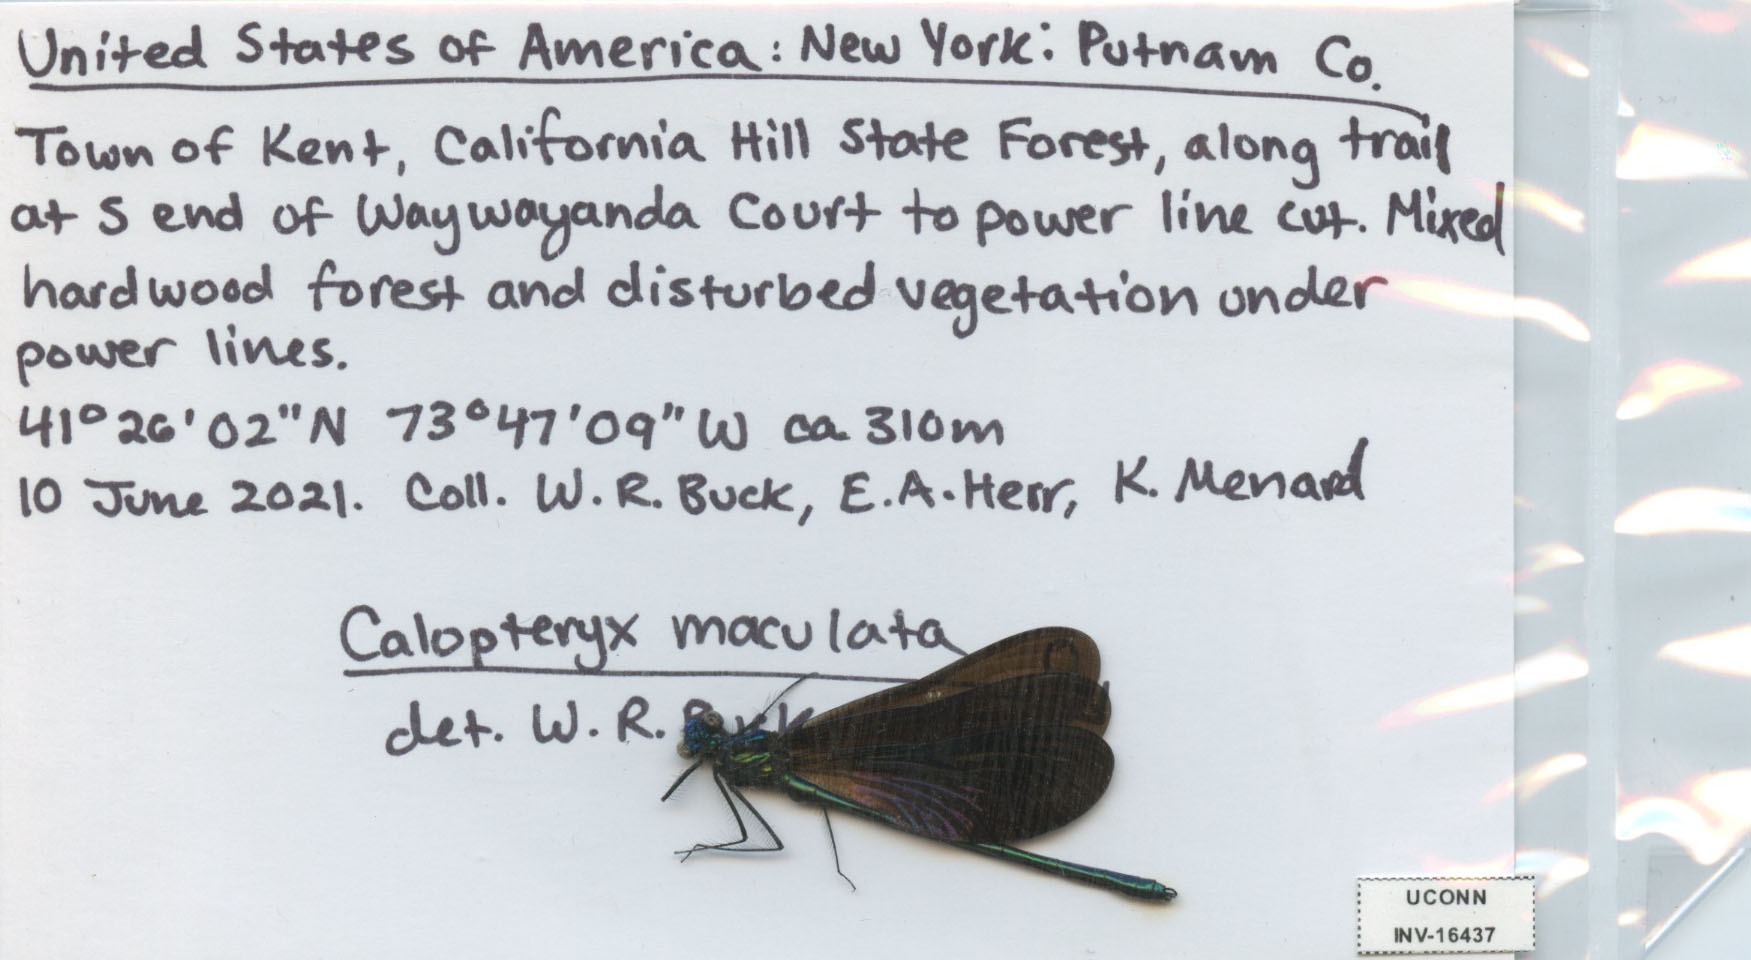 United States of America: New York: Putnam Co.
Town of Kent, California Hill State Forest, along trail
at S end of Waywayanda Court to power line cut. Mixed
hardwood forest and disturbed vegetation under
power lines.
41°26'02"N 73°47'09"W ca. 310m
10 June 2021. Coll. W.R. Buck, E.A. Herr, K. Menard
Calopteryx maculata
det. W.R. Buck
UCONN
INV-16437